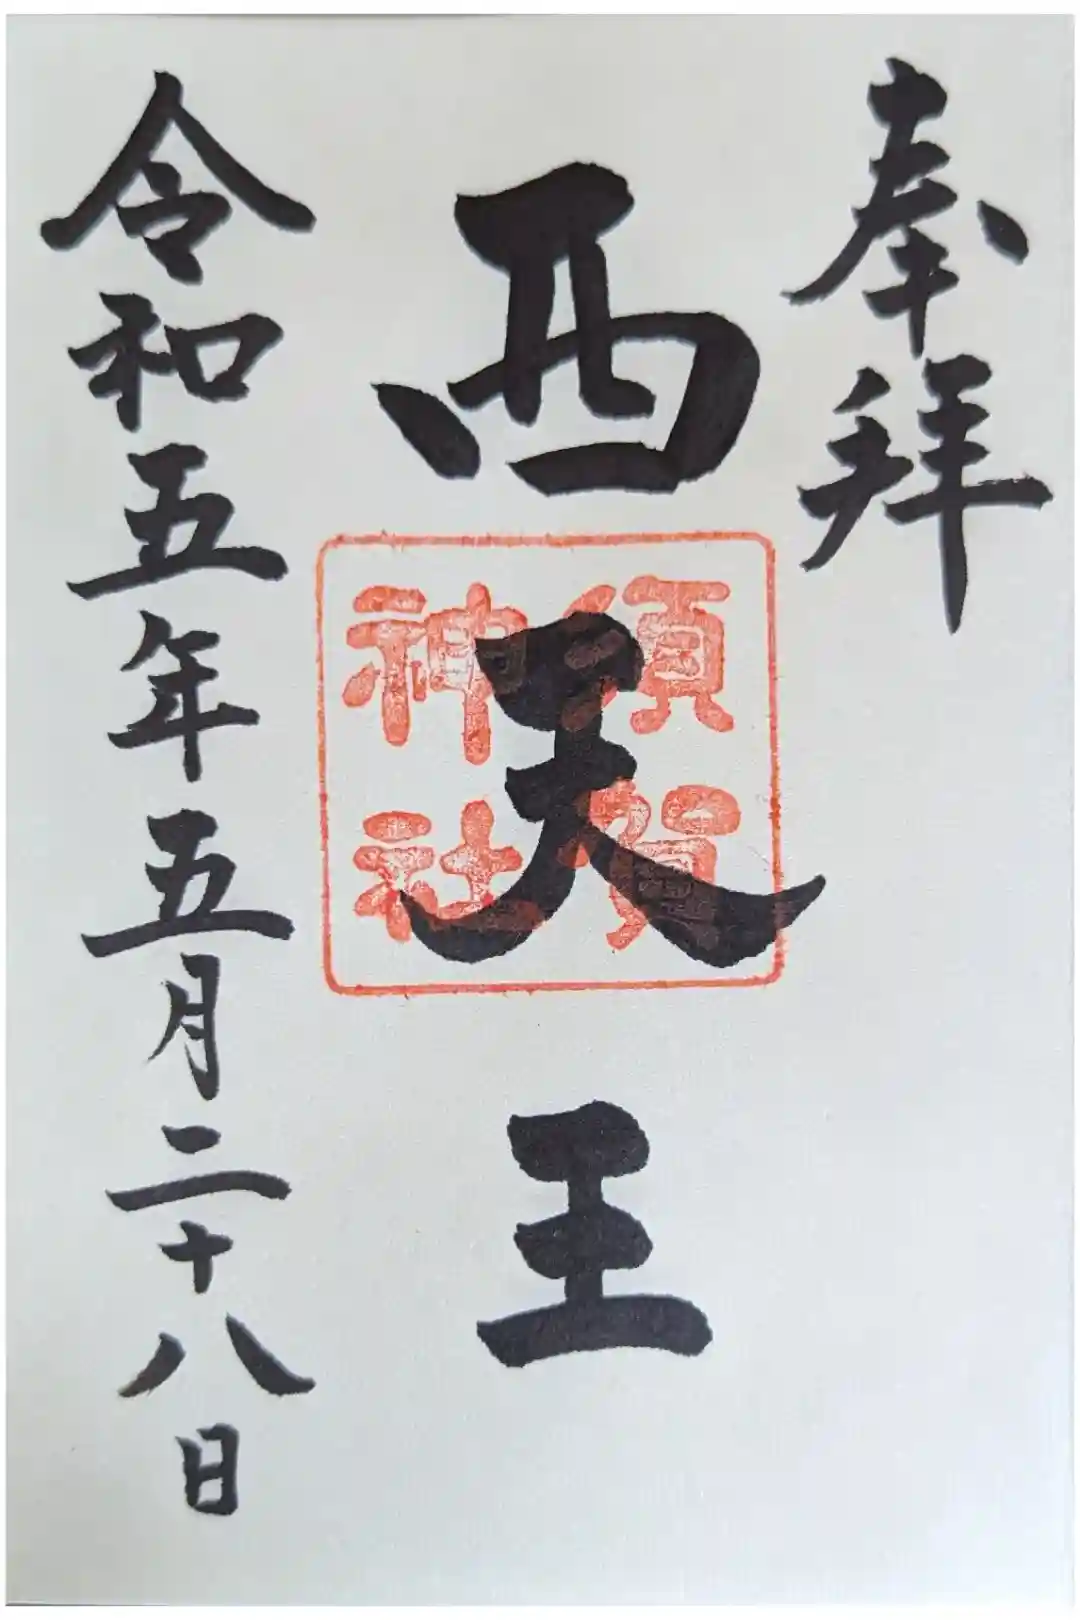 奉拝
西天王
須賀神社
令和五年五月二十八日